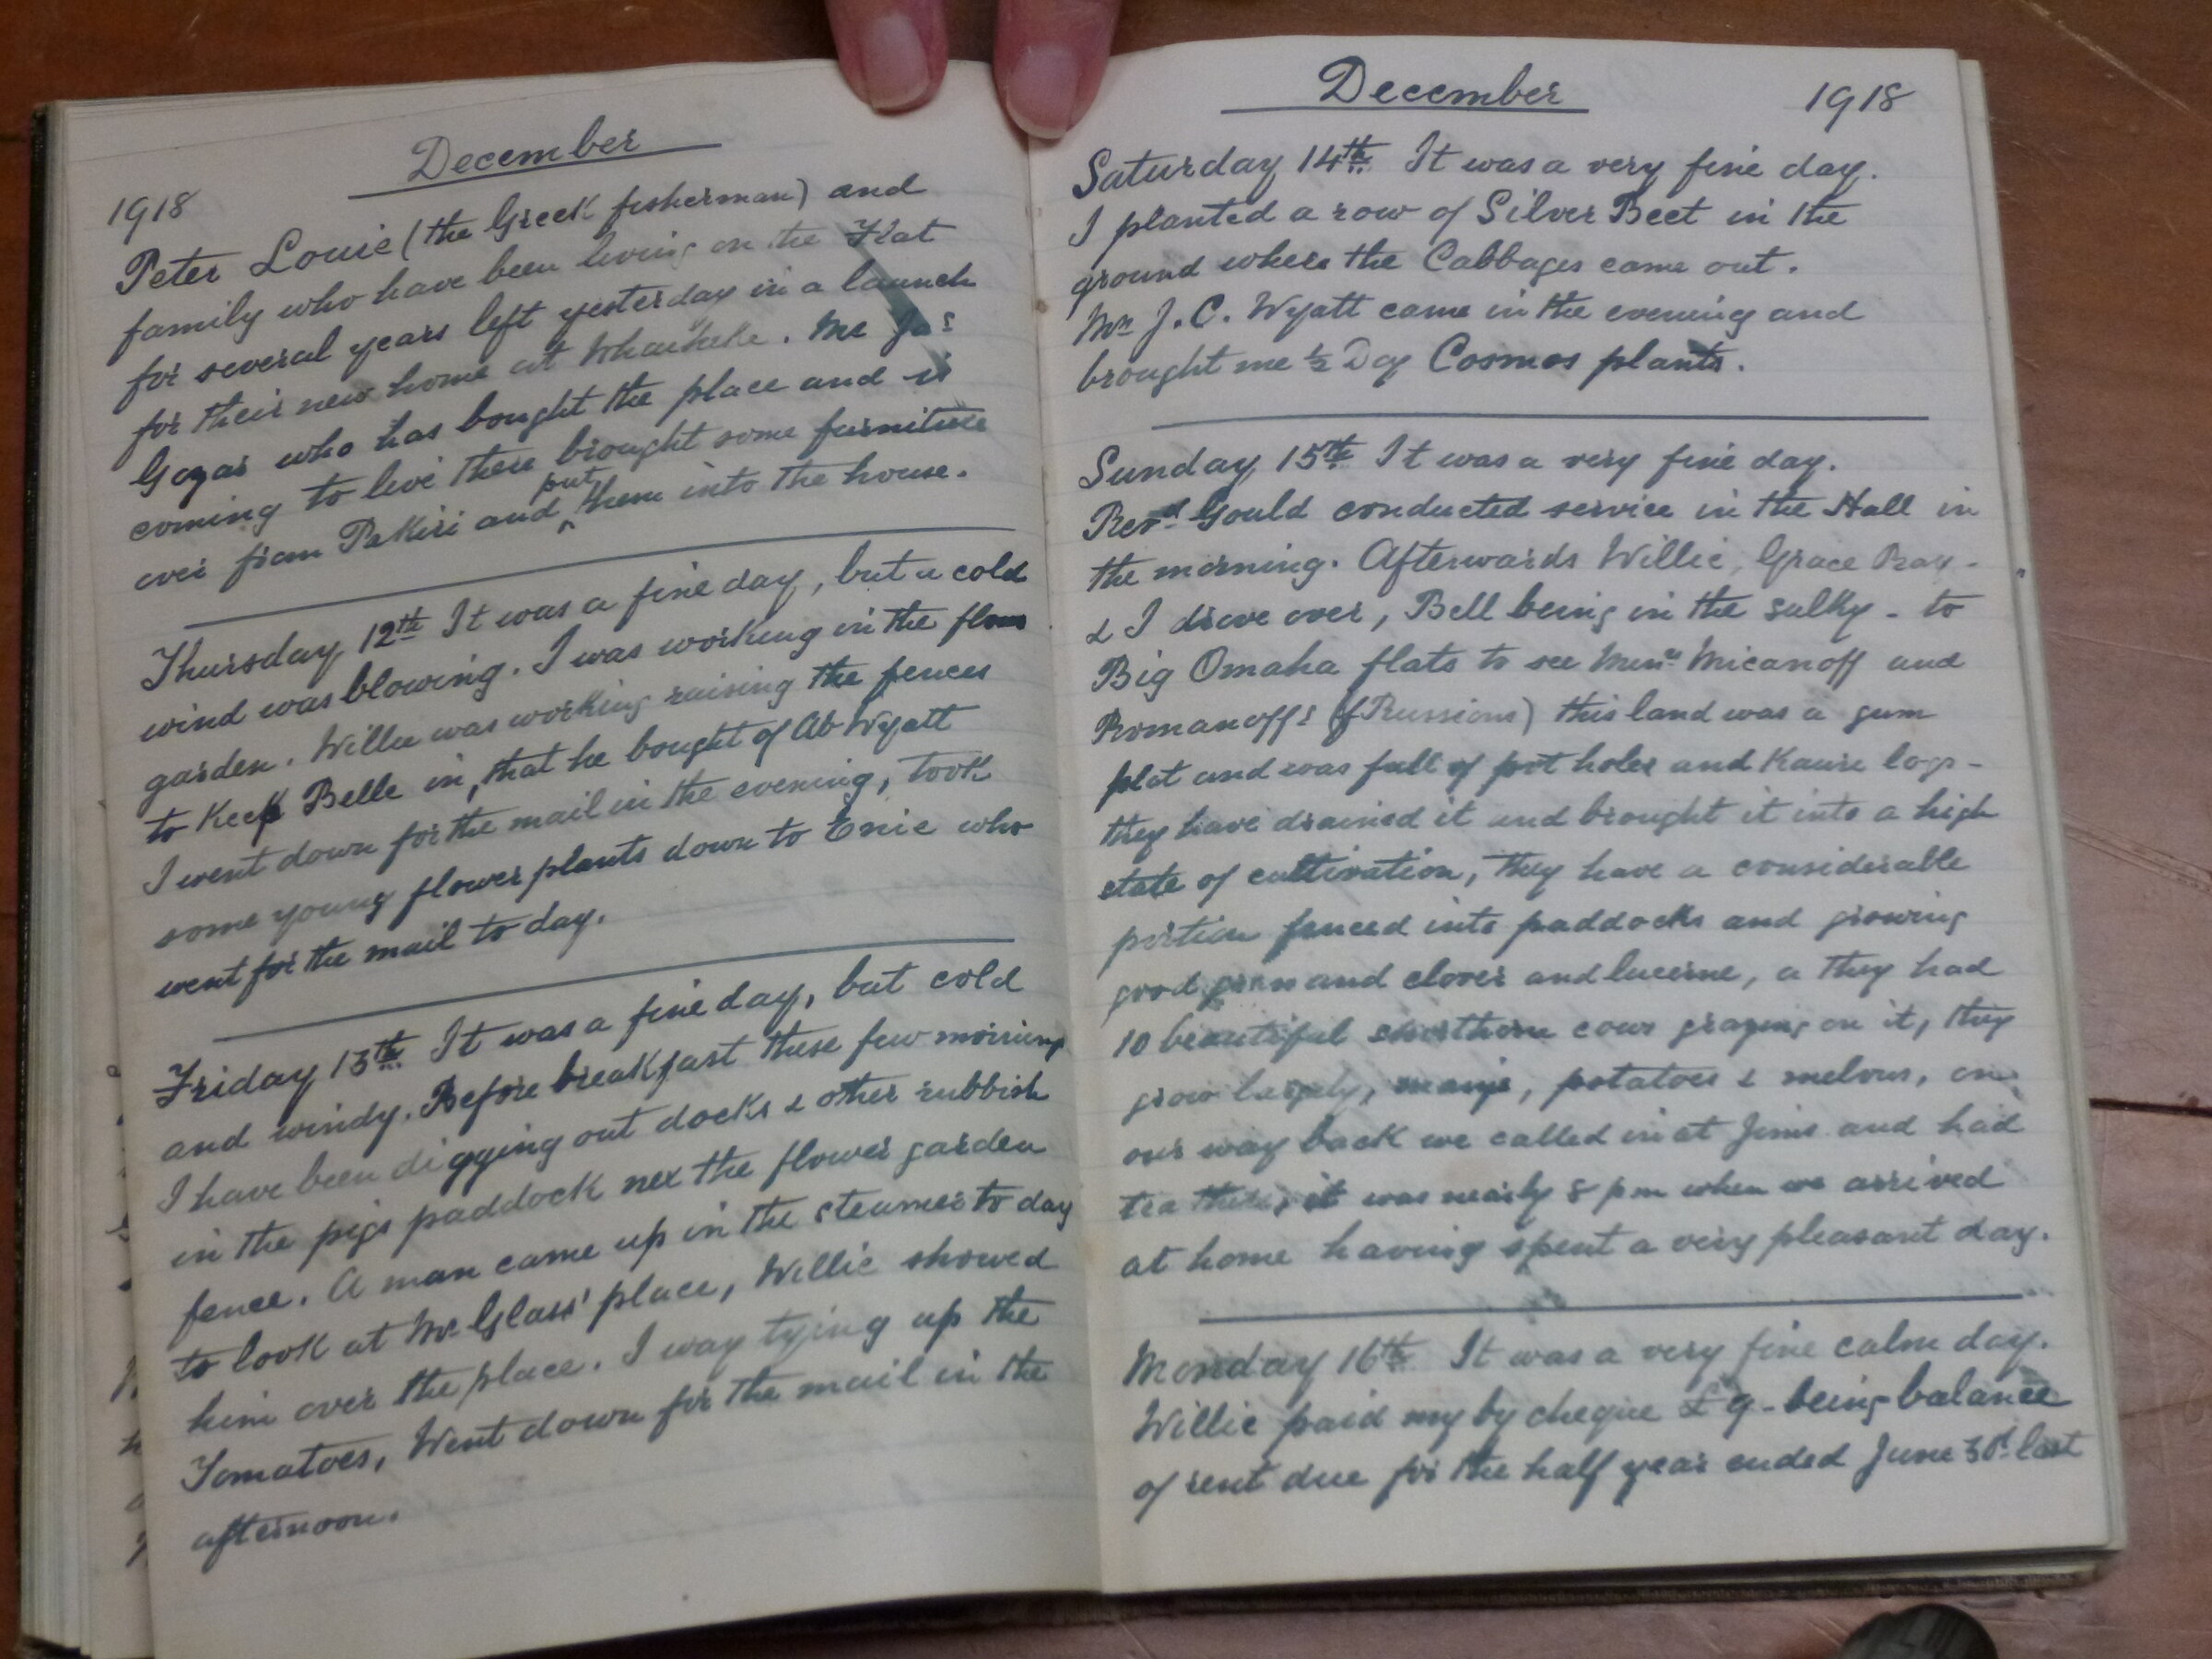 December
1918
Peter Louie (the Greek fisherman) and
family who have been living on the Flat
for several years left yesterday in a launch
for their new home at Whaiheke. Mr Jas
who has bought the place and is
coming to live there brought some furniture
over from Pakiri and put them into the house.
Thursday 12th It was a fine day, but a cold
wind was blowing. I was working in the flower
garden. Willie was working raising the fences
to keep Belle in, that he bought of Ab Wyatt
I went down for the mail in the evening, took
some young flower plants down to Enie who
went for the mail to day.
Friday 13th It was a fine day, but cold
and windy. Before breakfast these few mornings
I have been digging out docks & other rubbish
in the pigs paddock nex the flower garden
fence. A man came up in the steamer to day
to look at Mr Glass' place, Willie showed
him over the place. I way tying up the
Tomatoes, Went down for the mail in the
afternoon.
December 1918
Saturday 14th It was a very fine day.
I planted a row of Silver Beet in the
ground where the Cabbages came out.
J. C. Wyatt came in the evening and
brought me ½ Doz Cosmos plants.
Sunday 15th It was a very fine day.
Revd Gould conducted service in the Hall in
the morning. Afterwards Willie, Grace Ray -
& I drove over, Bell being in the sulky - to
Big Omaha flats to see Micanoff and
Romanoffs (Russians) this land was a gum
plat and was full of pot holes and Kauri logs -
they have drained it and brought it into a high
state of cultivation, they have a considerable
portion fenced into paddocks and growing
good grass and clover and lucerne, a they had
10 beautiful shorthorn cows grazing on it, they
grow largely, potatoes & melons, on
our way back we called in at Jims and had
tea there, it was nearly 8 pm when we arrived
at home having spent a very pleasant day.
Monday 16th It was a very fine calm day.
Willie paid my by cheque £9 - being balance
of rent due for the half year ended June 30th last